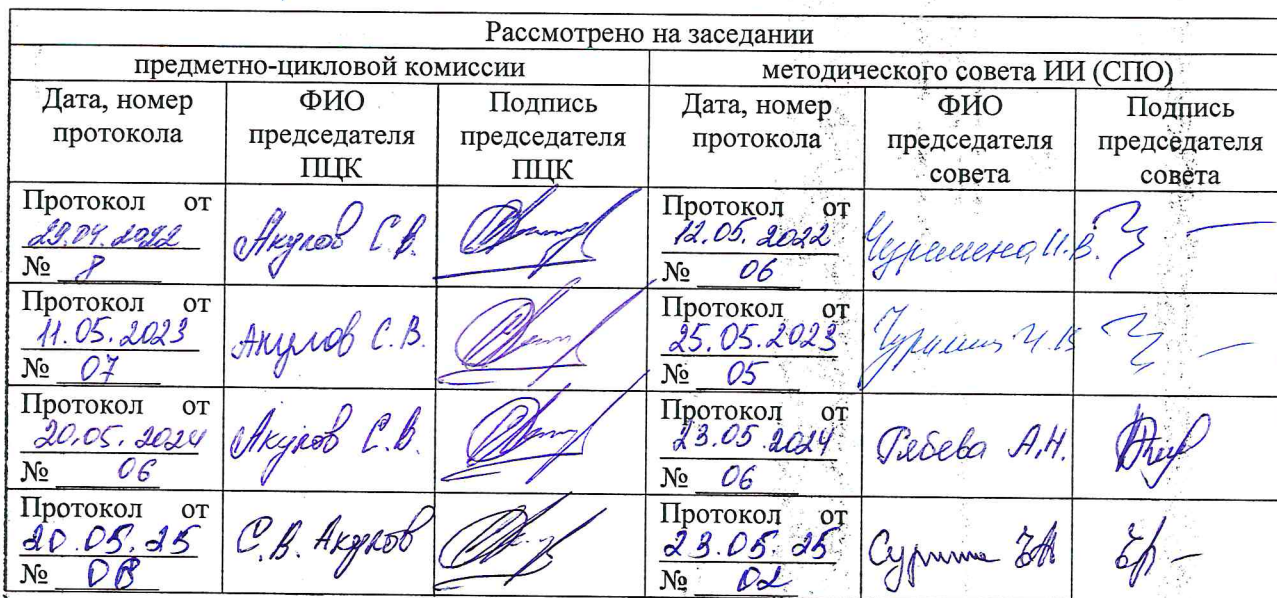 Рассмотрено на заседании
предметно-цикловой комиссии
методического совета ИИ (СПО)
Дата, номер протокола
ФИО председателя ПЦК
Подпись председателя ПЦК
Дата, номер протокола
ФИО председателя совета
Подпись председателя совета
Протокол от
29.04.2022
№ 8
Акулов С.В.
Протокол от
12.05.2022
№ 06
И.В.
Протокол от
11.05.2023
№ 07
Акулов С.В.
Протокол от
25.05.2023
№ 05
Протокол от
20.05.2024
№ 06
Акулов С.В.
Протокол от
23.05.2024
№ 06
Рябева А.Н.
Протокол от
20.05.25
№ 08
С.В. Акулов
Протокол от
23.05.25
№ 02